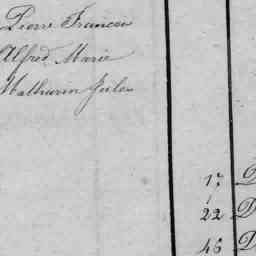 Pierre François
Alfred Marie
Mathurin Jules
17 D
22 D
46 D